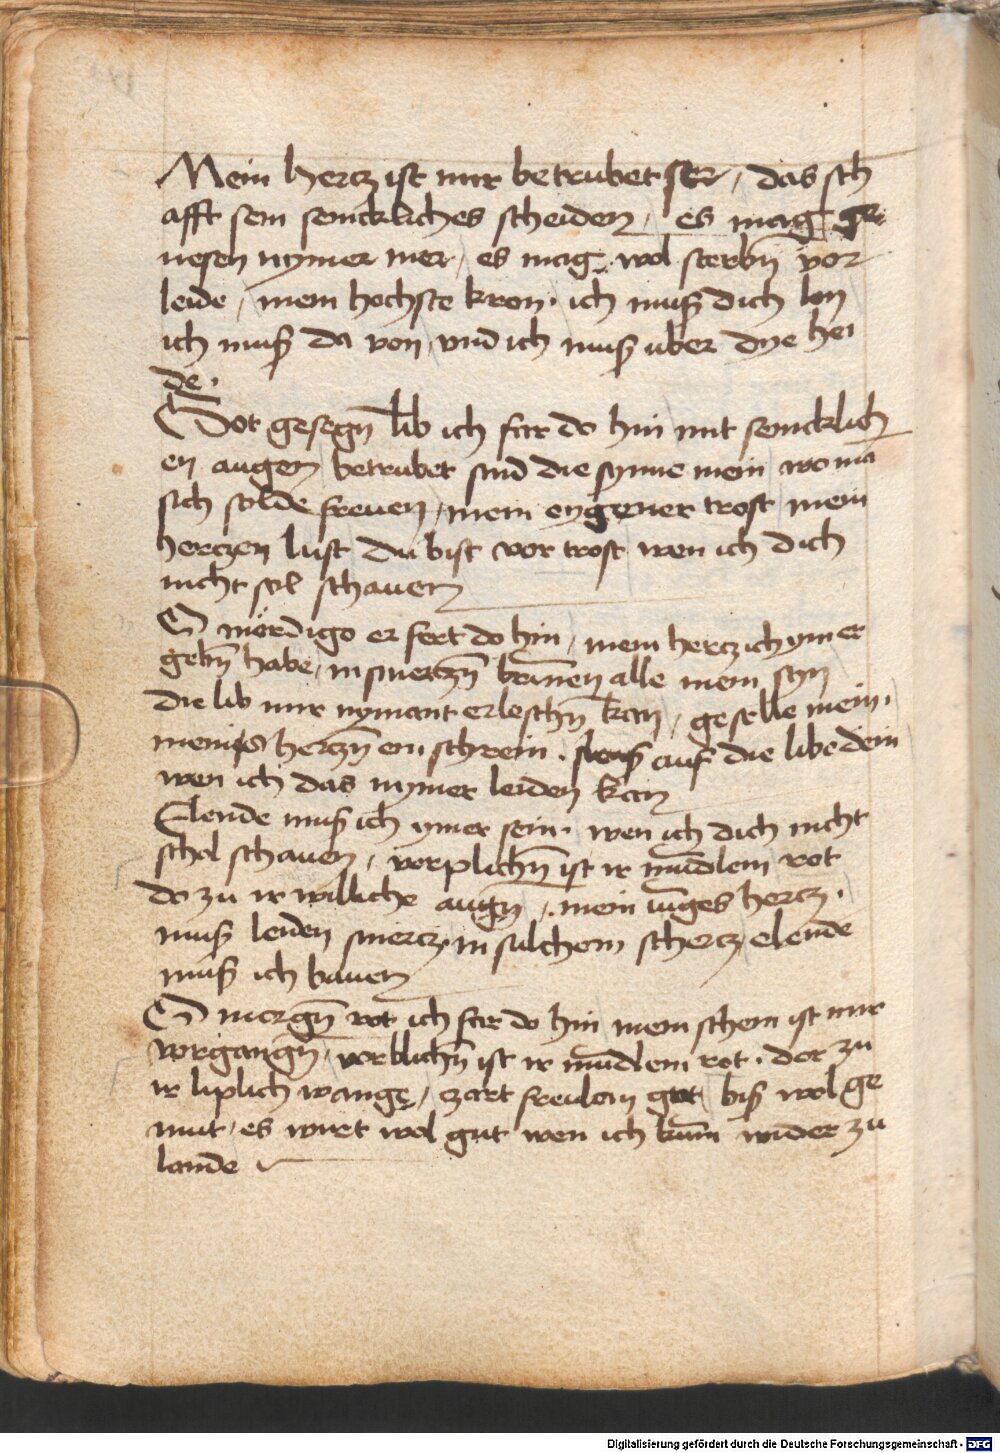 Mein hercz ist mir betrubet ser / das sch
afft sein senickliches scheiden / es mag ge
nesen nymer mer / es mag wol sterbn̄ vor
leide / mein hochste kron · ich muß dich lon
ich muß da von / vnd ich muß uber dye hei
de ·
Got gesegn̄ lib ich far do hin mit senicklich
en augen betrubet sind die synne mein wo mā
sich solde freuen / mein eygener trost mein
herczen lust du bist vor trost wen ich dich
nicht sol schauen
O mordigo er fert do hin / mein hercz ich ymer
gebn̄ habe / in smerczn̄ brīnen alle mein syn
die lib mir nymant erleschn̄ kan / geselle mein ·
meins herczn̄ ein schrein · sleuß auf die libe dein
wen ich das nymer leiden kan
Elende muß ich ymer sein · wen ich dich nicht
schol schauen / vorplichn̄ ist ir mūdlein rot
do zu ir williche augn̄ / mein iūges hercz ·
muß leiden smercz · in sulchem schercz elende
muß ich bauen
O morgn̄ rot ich far do hin mein schein ist mir
vorgangn̄ / vorblichn̄ ist ir mūdlein rot · dor zu
ir liplich wange / czart freulein gut biß wol ge
mut / es wirt wol gut wen ich kum̄ wider zu
lande
Digitalisierung gefördert durch die Deutsche Forschungsgemeinschaft - DFG